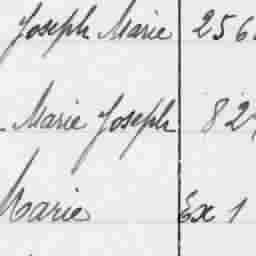 Joseph Marie 256
Marie Joseph 82
Marie Ex 1